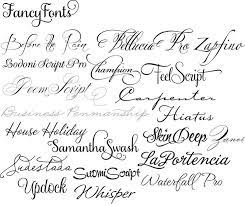 FancyFonts
Before the Rain Bellucia Pro Zapfino
Bodoni Script Pro Champion FeelScript
Poem Script Carpenter
Business Penmanship Hiatus
House Holiday SkinDeep Janet
SamanthaSwash LaPortencia
SudsiScript
Updock Whisper Waterfall Pro